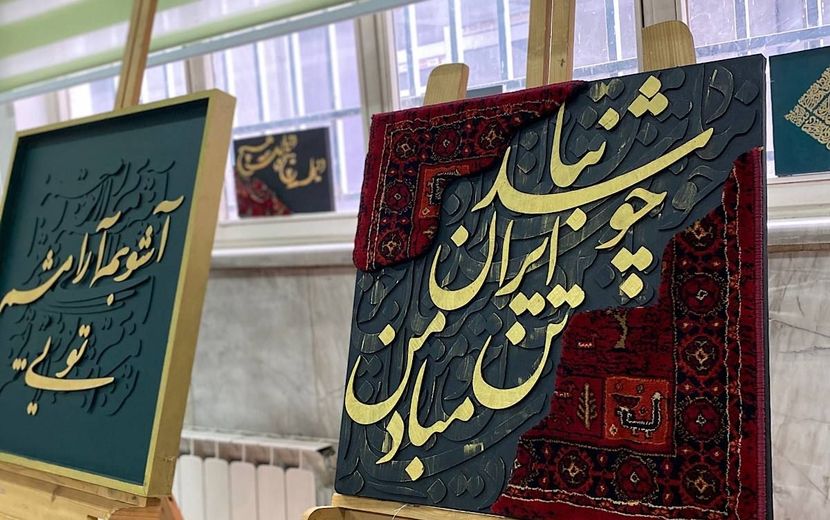 چو ایران نباشد
تن من مباد
آشوبم آرامشم
تویی